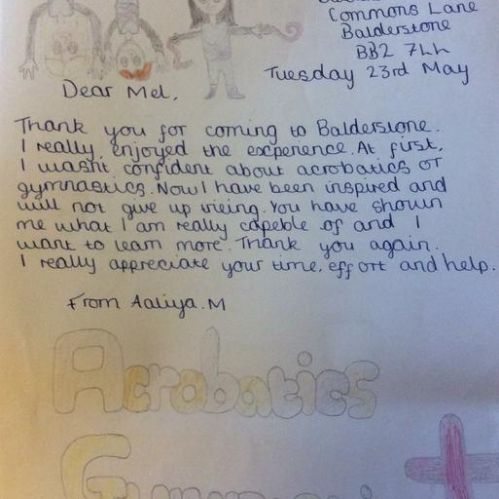 Commons Lane
Balderstone
BB2 7LL
Tuesday 23rd May
Dear Mel,
Thank you for coming to Balderstone.
I really enjoyed the experience. At first,
I wasn't confident about acrobatics or
gymnastics. Now I have been inspired and
will not give up trying. You have shown
me what I am really capeble of and I
want to learn more. Thank you again.
I really appreciate your time, effort and help.
From Aaliya.M
Acrobatics